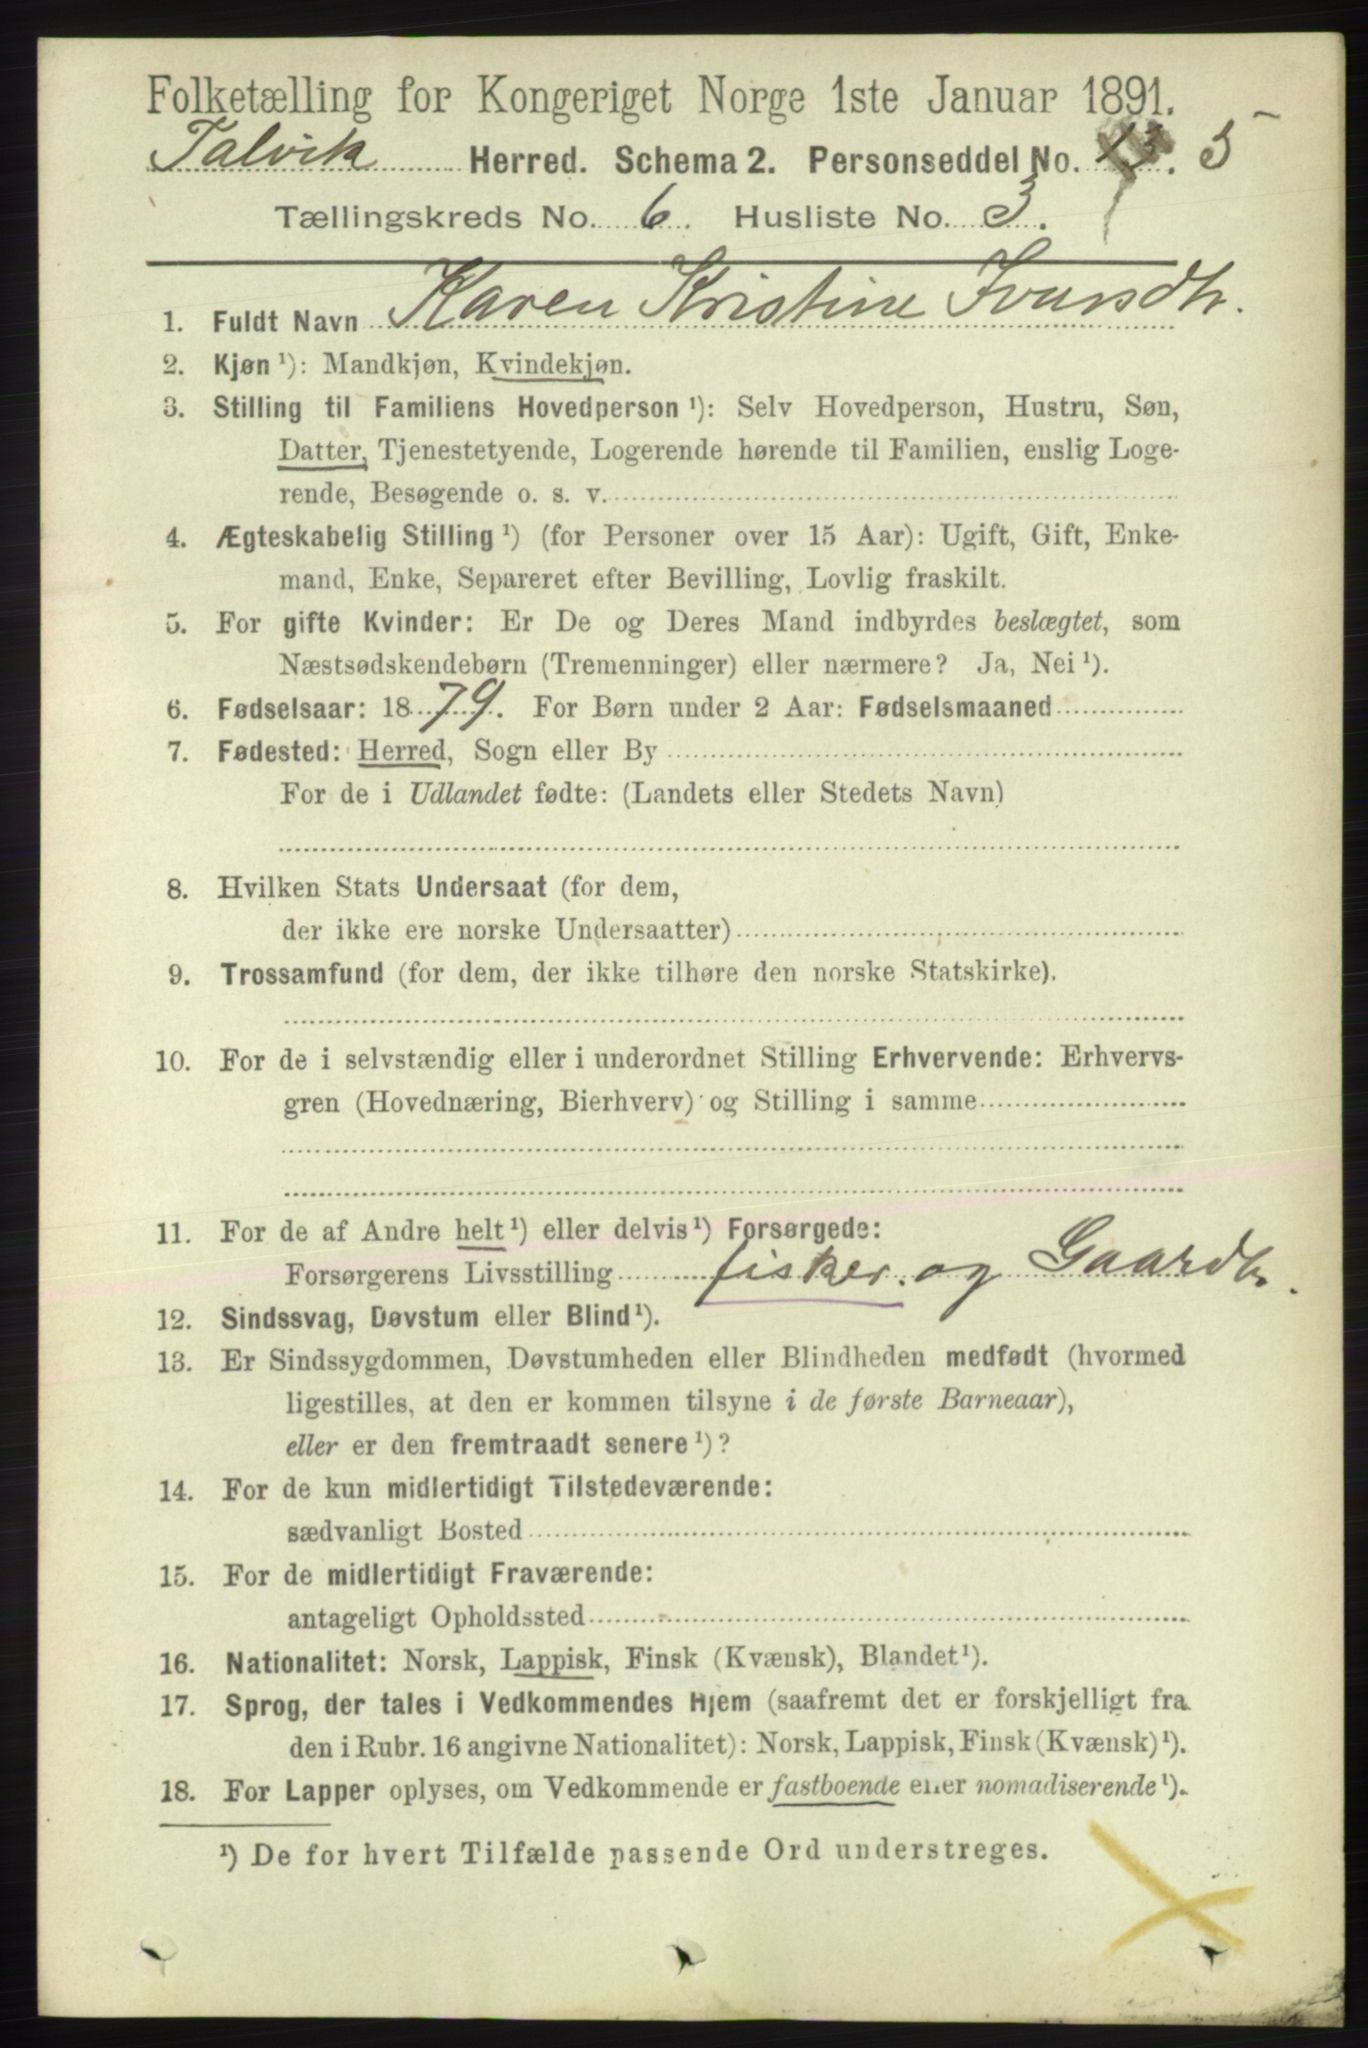 Folketælling for Kongeriget Norge 1ste Januar 1891.
Talvik Herred. Schema 2. Personseddel No. 5
Tællingskreds No. 6. Husliste No. 3.
1. Fuldt Navn Karen Kristine Ivarsdtr.
2. Kjøn ¹): Mandkjøn, Kvindekjøn.
3. Stilling til Familiens Hovedperson ¹): Selv Hovedperson, Hustru, Søn,
Datter, Tjenestetyende, Logerende hørende til Familien, enslig Loge-
rende, Besøgende o. s. v.
4. Ægteskabelig Stilling ¹) (for Personer over 15 Aar): Ugift, Gift, Enke-
mand, Enke, Separeret efter Bevilling, Lovlig fraskilt.
5. For gifte Kvinder: Er De og Deres Mand indbyrdes beslægtet, som
Næstsødskendebørn (Tremenninger) eller nærmere? Ja, Nei ¹).
6. Fødselsaar: 1879. For Børn under 2 Aar: Fødselsmaaned
7. Fødested: Herred, Sogn eller By
For de i Udlandet fødte: (Landets eller Stedets Navn)
8. Hvilken Stats Undersaat (for dem,
der ikke ere norske Undersaatter)
9. Trossamfund (for dem, der ikke tilhøre den norske Statskirke).
10. For de i selvstændig eller i underordnet Stilling Erhvervende: Erhvervs-
gren (Hovednæring, Bierhverv) og Stilling i samme
11. For de af Andre helt ¹) eller delvis ¹) Forsørgede:
Forsørgerens Livsstilling fisker og Gaardbr.
12. Sindssvag, Døvstum eller Blind ¹).
13. Er Sindssygdommen, Døvstumheden eller Blindheden medfødt (hvormed
ligestilles, at den er kommen tilsyne i de første Barneaar),
eller er den fremtraadt senere ¹)?
14. For de kun midlertidigt Tilstedeværende:
sædvanligt Bosted
15. For de midlertidigt Fraværende:
antageligt Opholdssted
16. Nationalitet: Norsk, Lappisk, Finsk (Kvænsk), Blandet ¹).
17. Sprog, der tales i Vedkommendes Hjem (saafremt det er forskjelligt fra
den i Rubr. 16 angivne Nationalitet): Norsk, Lappisk, Finsk (Kvænsk) ¹).
18. For Lapper oplyses, om Vedkommende er fastboende eller nomadiserende ¹).
¹) De for hvert Tilfælde passende Ord understreges.